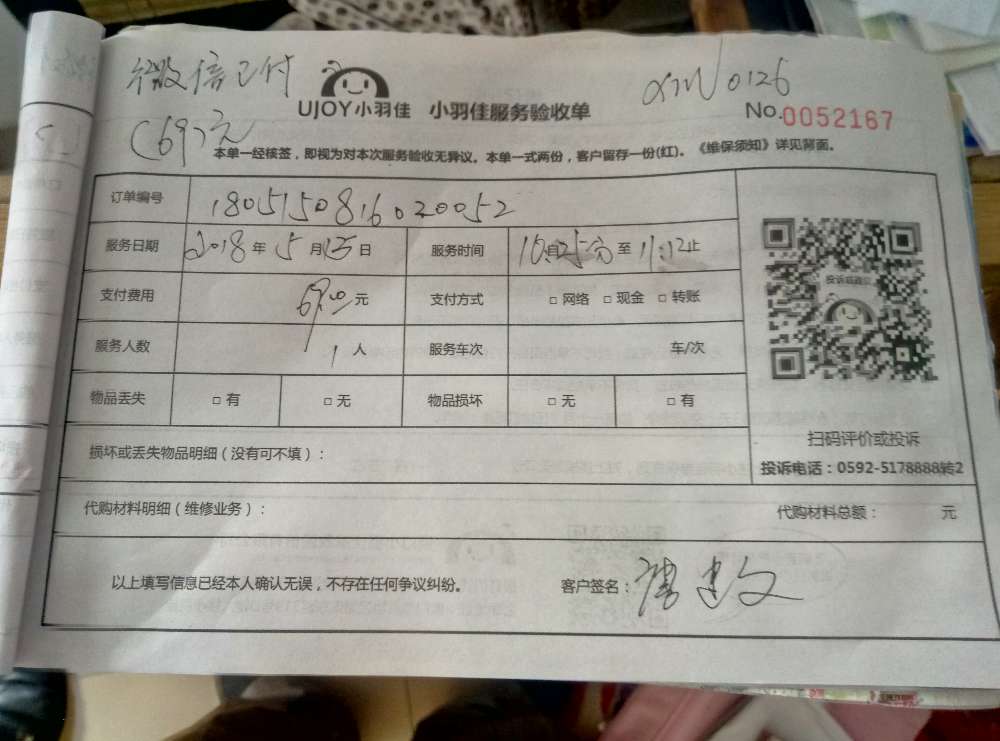 微信已付
XM0126
UJOY小羽佳 小羽佳服务验收单
No.0052167
(69)元
本单一经核签，即视为对本次服务验收无异议。本单一式两份，客户留存一份(红)。《维保须知》详见背面。
订单编号 1805150816020052
服务日期 2018年5月15日 服务时间 10时25分至11:12止
支付费用 69.00元 支付方式 □网络 □现金 □转账
服务人数 1人 服务车次 车/次
物品丢失 □有 □无 物品损坏 □无 □有
扫码评价或投诉
损坏或丢失物品明细（没有可不填）：
投诉电话：0592-5178888转2
代购材料明细（维修业务）： 代购材料总额： 元
以上填写信息已经本人确认无误，不存在任何争议纠纷。 客户签名：